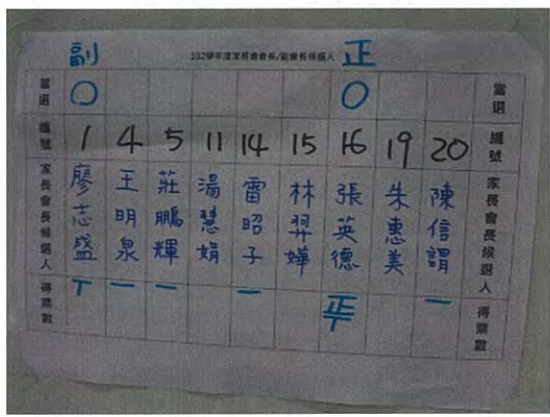 副 正
102學年度家長會會長/副會長候選人
當選 ○ ○ 當選
編號 1 4 5 11 14 15 16 19 20 編號
家長會長候選人 廖志盛 王明泉 莊鵬輝 湯慧娟 雷昭子 林羿嬅 張英德 朱惠美 陳信謂 家長會長候選人
得票數 丅 一 一 一 正丅 一 得票數